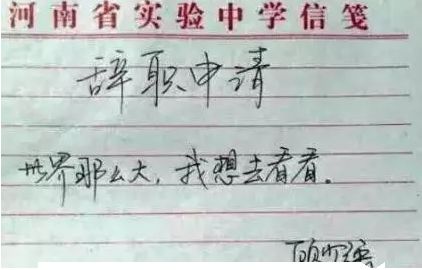 河南省实验中学信笺
辞职申请
世界那么大,我想去看看。
顾少强